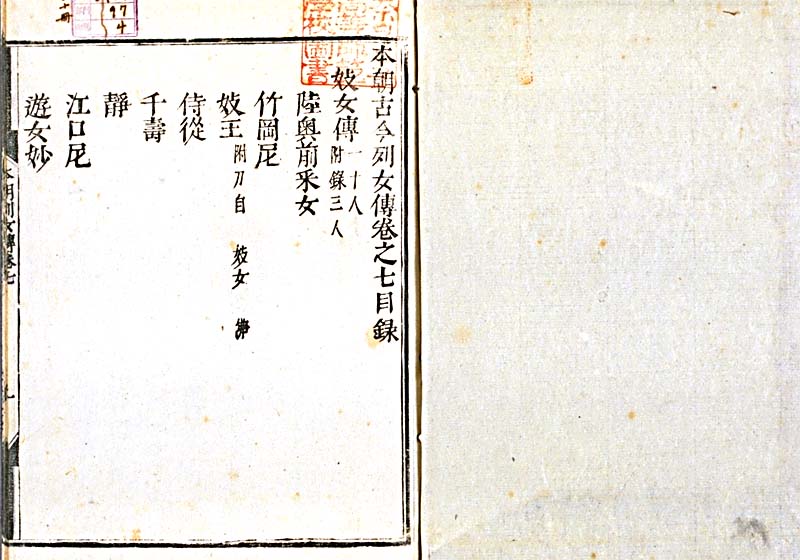 本朝古今列女傳卷之七目録
妓女傳 一十人 附録三人
陸奥前采女
竹岡尼
妓王 附刀自 妓女 佛
侍從
千壽
靜
江口尼
遊女妙
本朝列女傳卷七
97
4
圖書